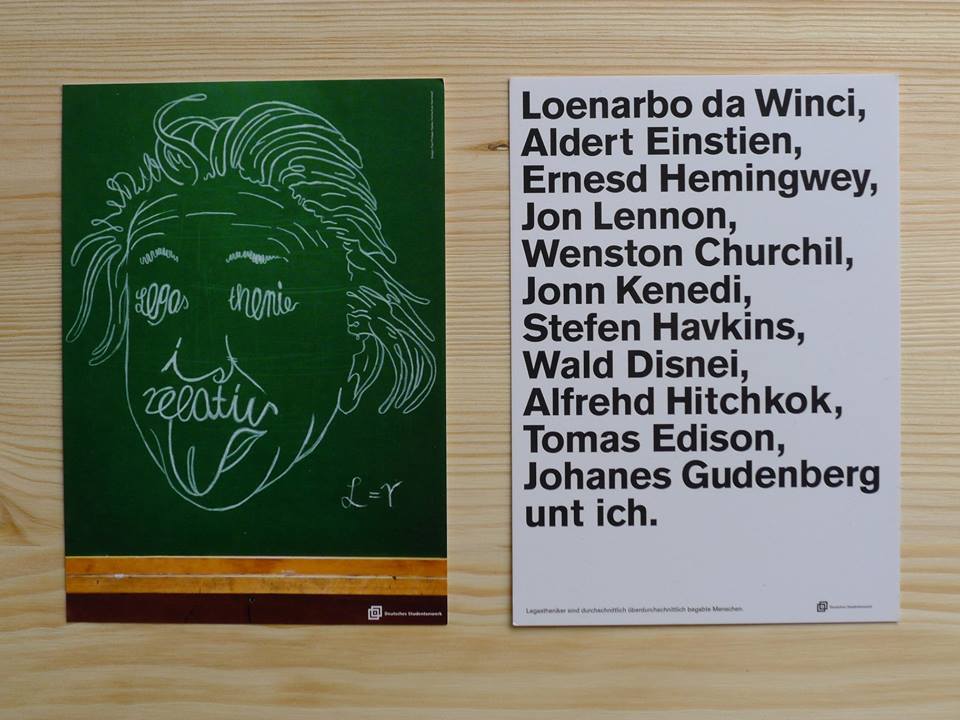 Legas thenie
ist
relativ
L=r
Deutsches Studentenwerk
Loenarbo da Winci,
Aldert Einstien,
Ernesd Hemingwey,
Jon Lennon,
Wenston Churchil,
Jonn Kenedi,
Stefen Havkins,
Wald Disnei,
Alfrehd Hitchkok,
Tomas Edison,
Johanes Gudenberg
unt ich.
Legastheniker sind durchschnittlich überdurchschnittlich begabte Menschen.
Deutsches Studentenwerk